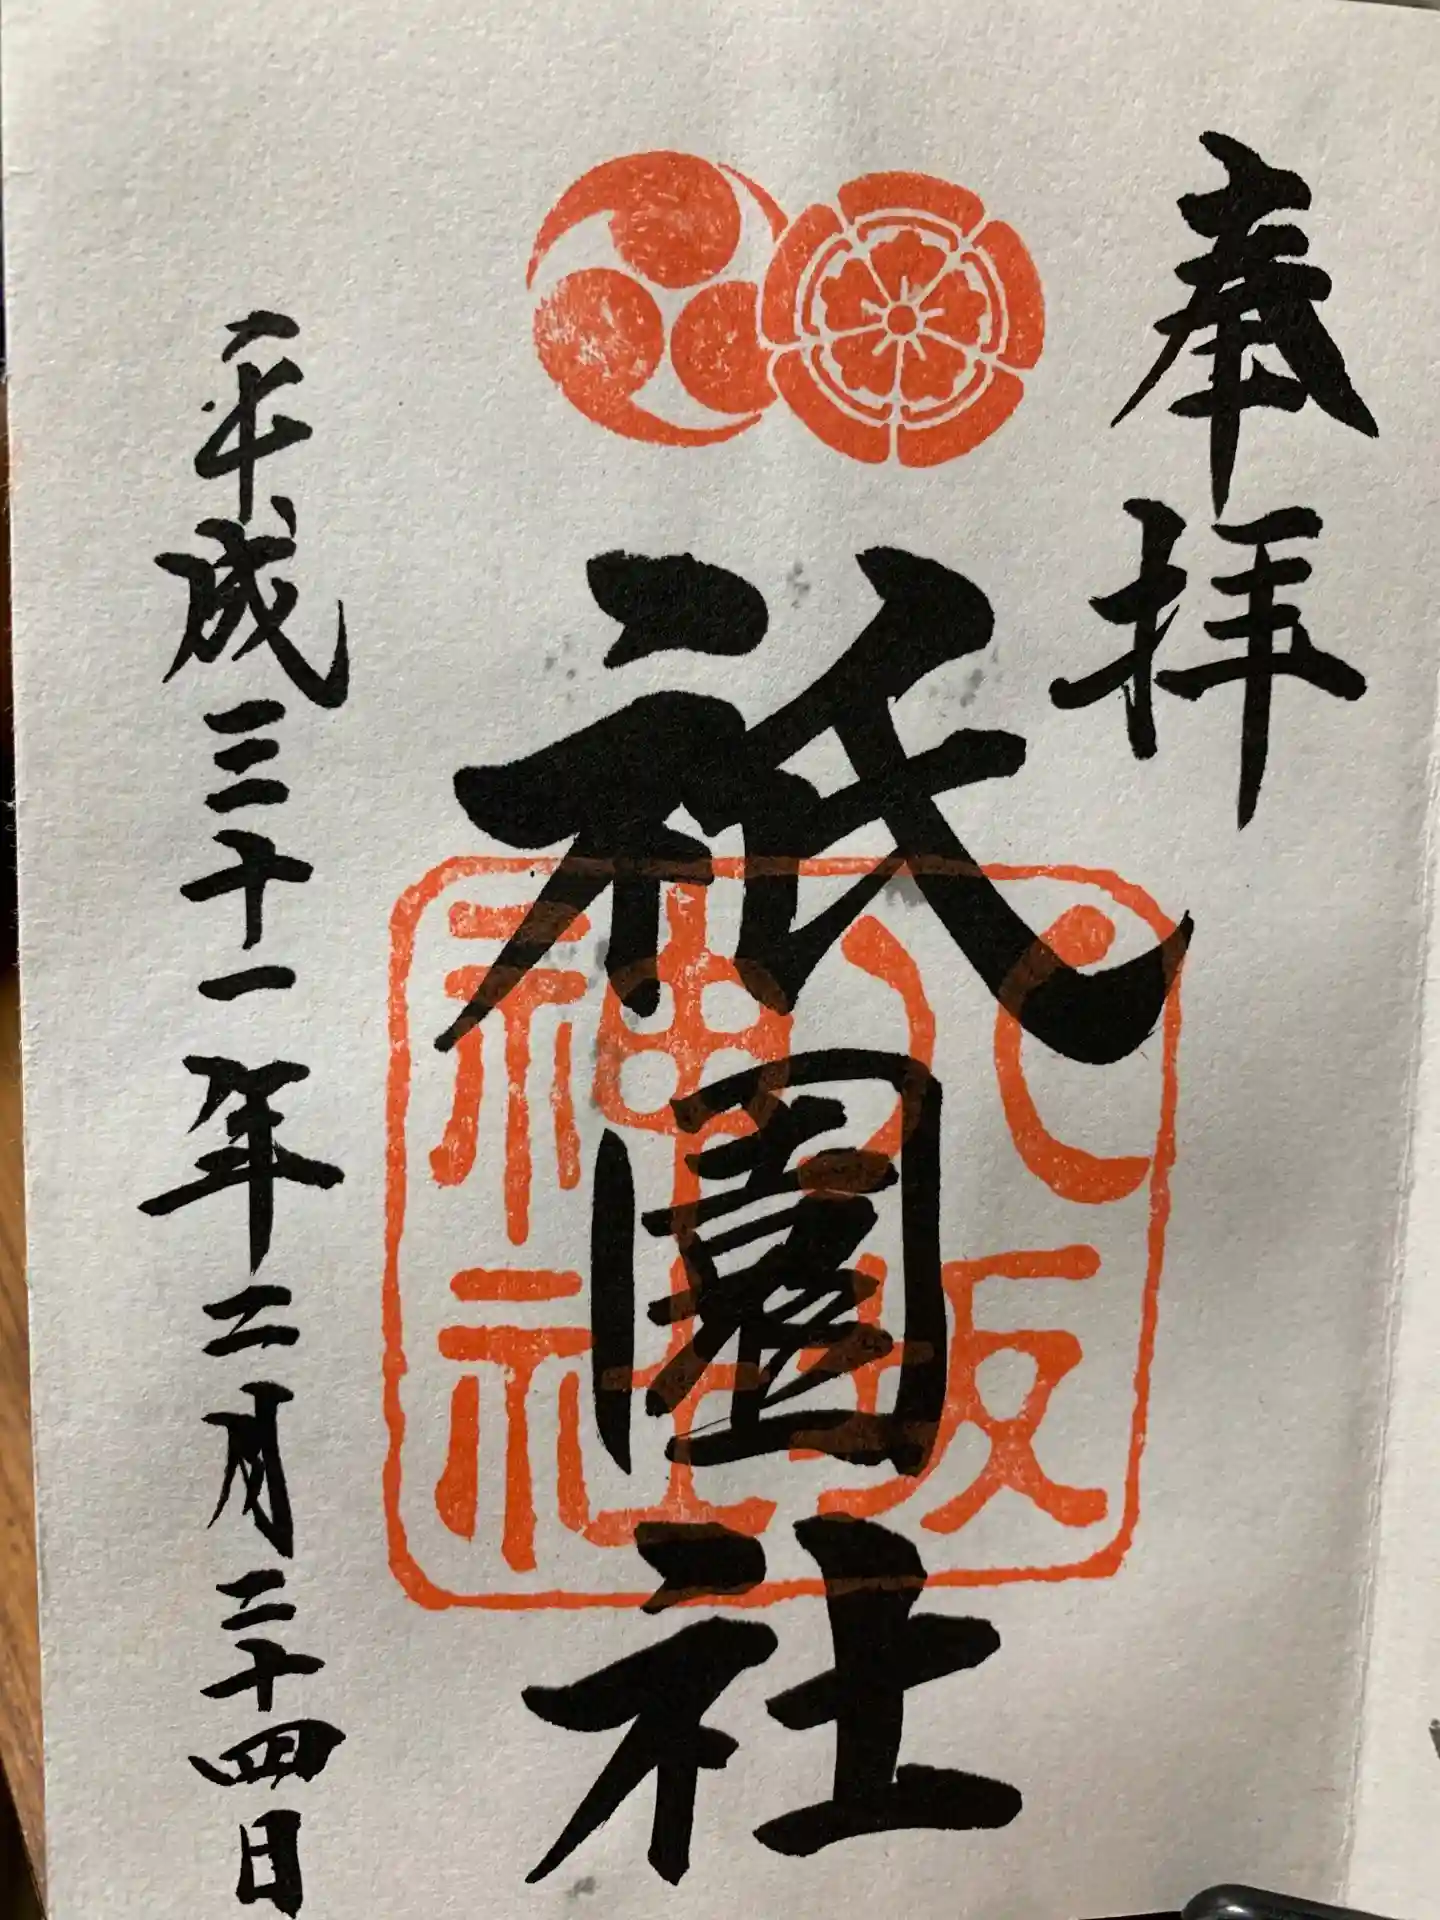 奉拝
祇園社
八坂
神社
平成三十一年二月二十四日